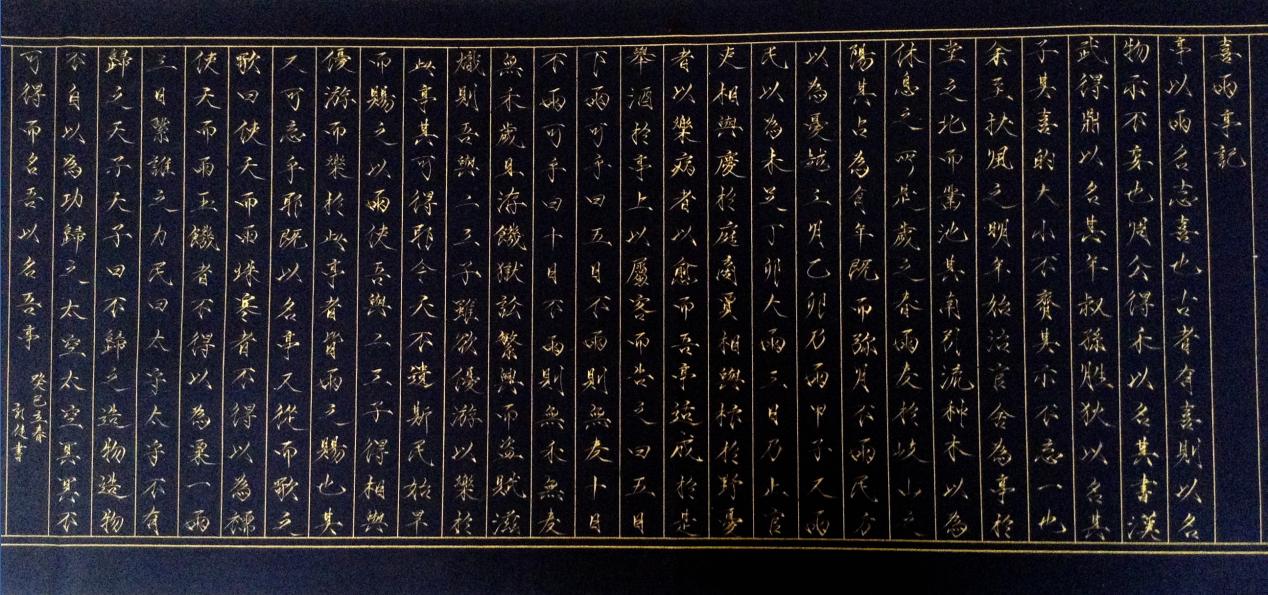 喜雨亭記
亭以雨名志喜也古者有喜則以名
物示不忘也周公得禾以名其書漢
武得鼎以名其年叔孫胜狄以名其
子其喜的大小不齊其示不忘一也
余至扶風之明年始治官舍為亭於
堂之北而鑿池其南引流种木以為
休息之所是歲之春雨麦於岐山之
陽其占為有年既而弥月不雨民方
以為憂越三月乙卯乃雨甲子又雨
民以為未足丁卯大雨三日乃止官
吏相與慶於庭商賈相與忭於野憂
者以樂病者以愈而吾亭适成於是
舉酒於亭上以屬客而告之曰五日
下雨可乎曰五日不雨則無麦十日
不雨可乎曰十日不雨則無禾無麦
無禾歲且洊饑獄訟繁興而盜賊滋
熾則吾與二三子雖欲優游以樂於
此亭其可得耶今天不遺斯民始旱
而賜之以雨使吾與二三子得相與
優游而樂於此亭者皆雨之賜也其
又可忘乎耶既以名亭又從而歌之
歌曰使天而雨珠寒者不得以為襦
使天而雨玉饑者不得以為粟一雨
三日繄誰之力民曰太守太守不有
歸之天子天子曰不歸之造物造物
不自以為功歸之太空太空冥冥不
可得而名吾以名吾亭
癸巳春
書